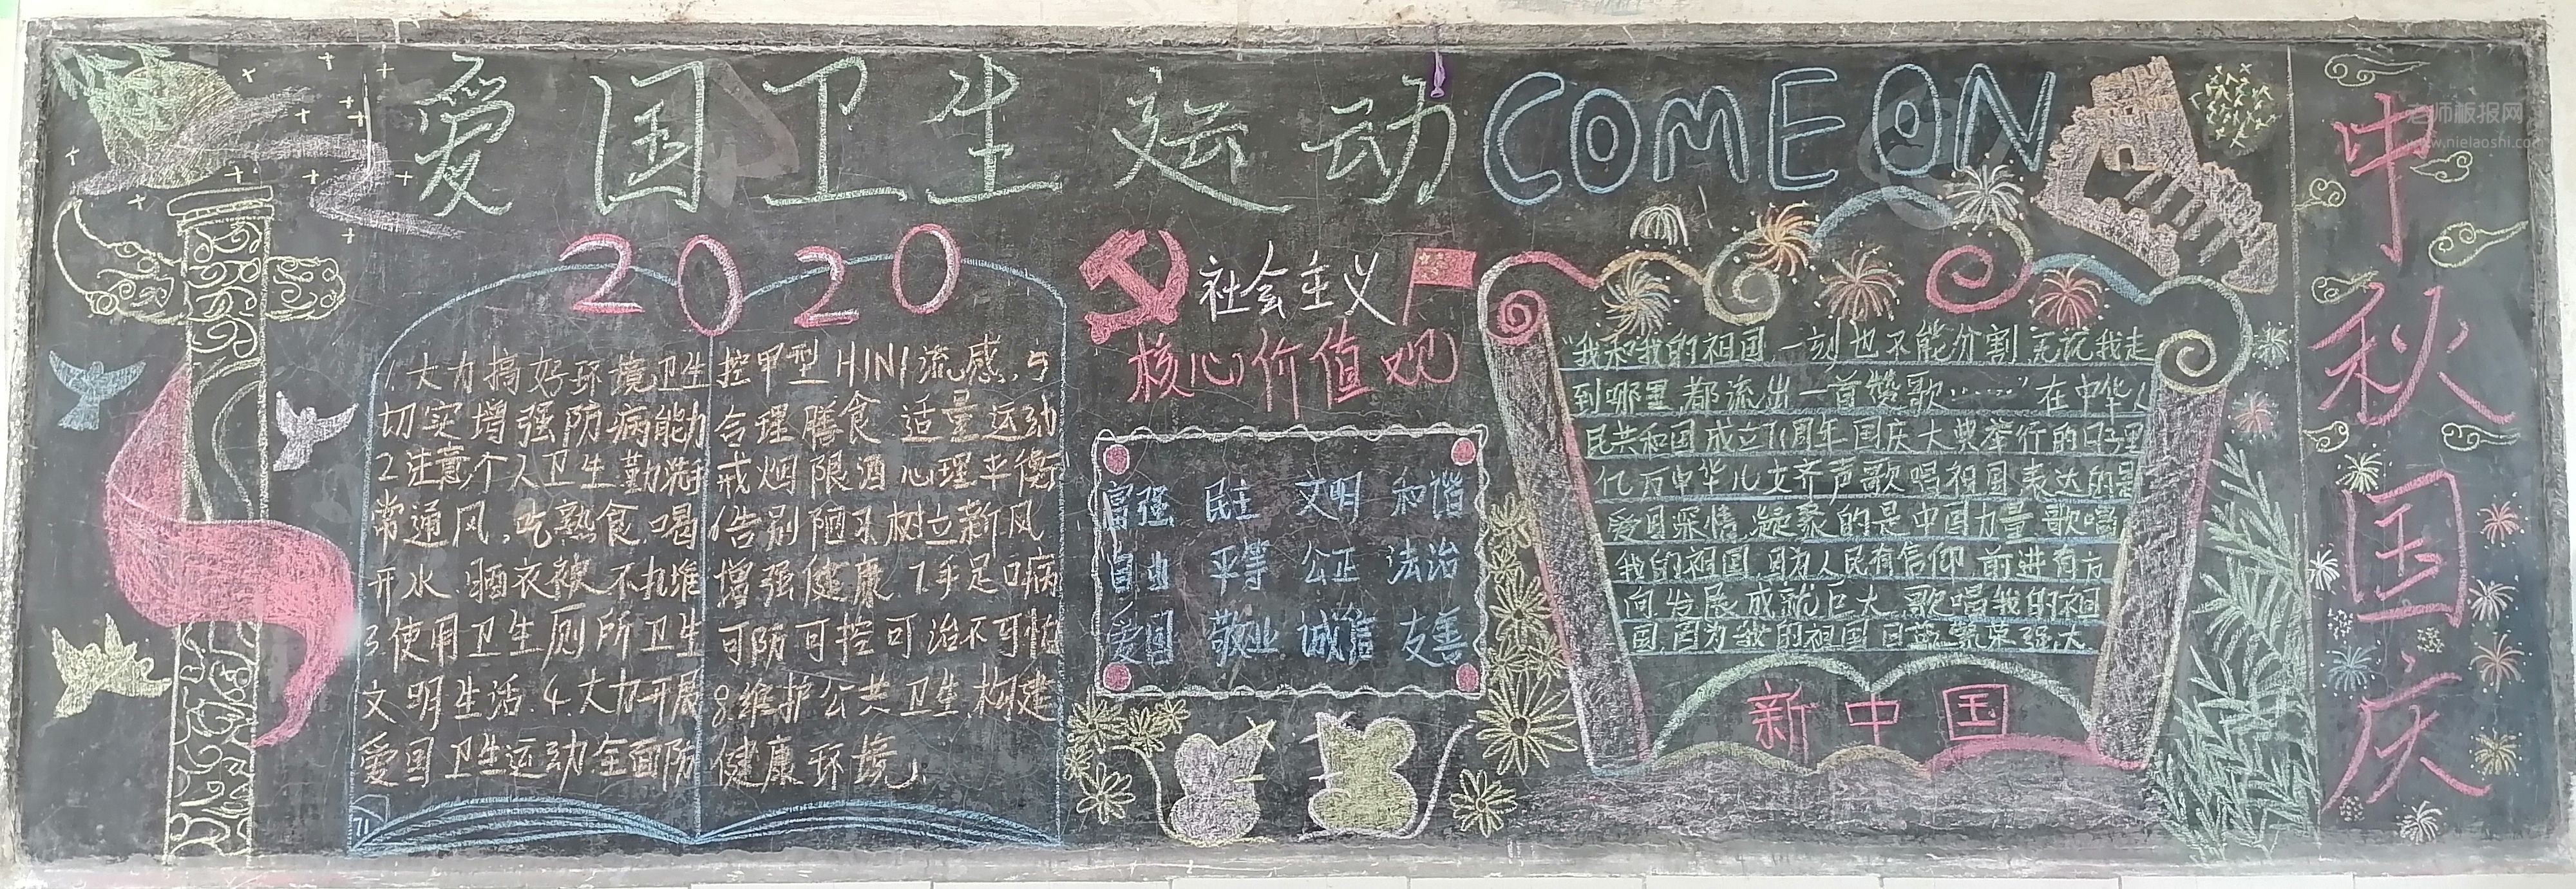 爱国卫生运动COME ON
2020
1.大力搞好环境卫生
切实增强防病能力
2注意个人卫生勤洗手
常通风,吃熟食.喝
开水.晒衣被.不扎堆
3使用卫生厕所卫生
文明生活.4.大力开展
爱国卫生运动全面防
控甲型H1N1流感.5
合理膳食 适量运动
戒烟限酒心理平衡
6告别陋习.树立新风
增强健康 7.手足口病
可防可控可治不可怕
8.维护公共卫生.构建
健康环境.
71
社会主义
核心价值观
富强 民主 文明 和谐
自由 平等 公正 法治
爱国 敬业 诚信 友善
“我和我的祖国,一刻也不能分割,无论我走
到哪里都流出一首赞歌……”在中华人
民共和国成立71周年国庆大典举行的日子里
亿万中华儿女齐声歌唱祖国表达的是
爱国深情,凝聚的是中国力量 歌唱
我的祖国,因为人民有信仰 前进有方
向.发展成就巨大.歌唱我的祖
国.因为我的祖国日益繁荣强大
新中国
中秋国庆
老师板报网
www.nielaoshi.com